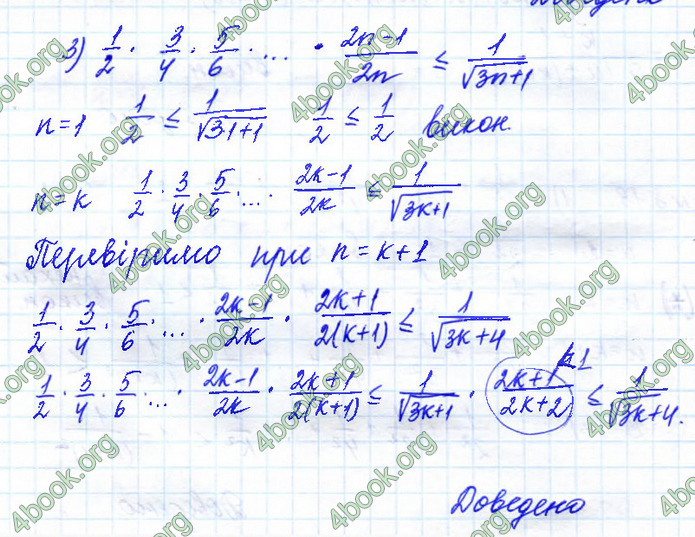 3) 1/2 · 3/4 · 5/6 · ... · (2n-1)/2n ≤ 1/√(3n+1)
n=1 1/2 ≤ 1/√(3·1+1) 1/2 ≤ 1/2 викон.
n=k 1/2 · 3/4 · 5/6 · ... (2k-1)/2k ≤ 1/√(3k+1)
Перевіримо при n=k+1
1/2 · 3/4 · 5/6 · ... · (2k-1)/2k · (2k+1)/2(k+1) ≤ 1/√(3k+4)
1/2 · 3/4 · 5/6 · ... · (2k-1)/2k · (2k+1)/2(k+1) ≤ 1/√(3k+1) · (2k+1)/(2k+2) ≤ 1/√(3k+4).
Доведено
4book.org